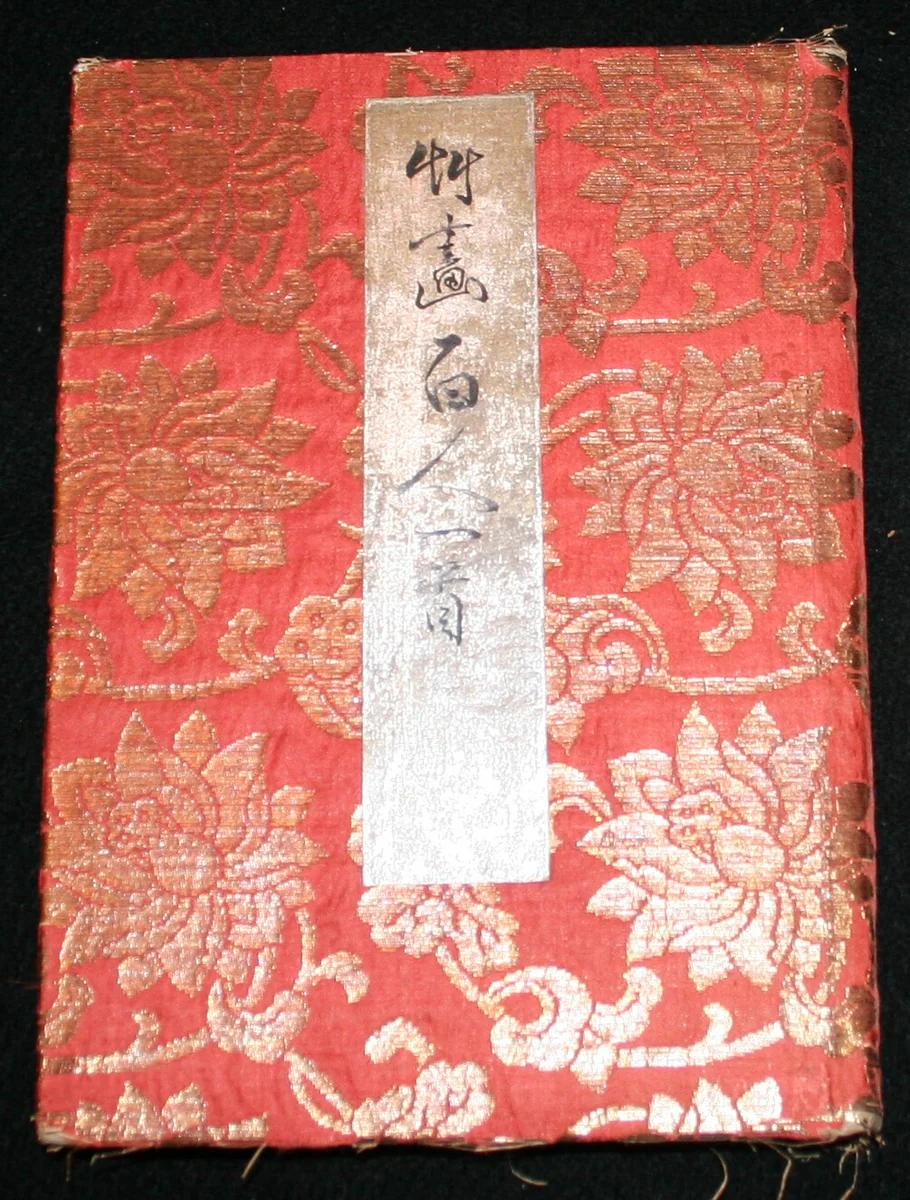 艸畫百人一首